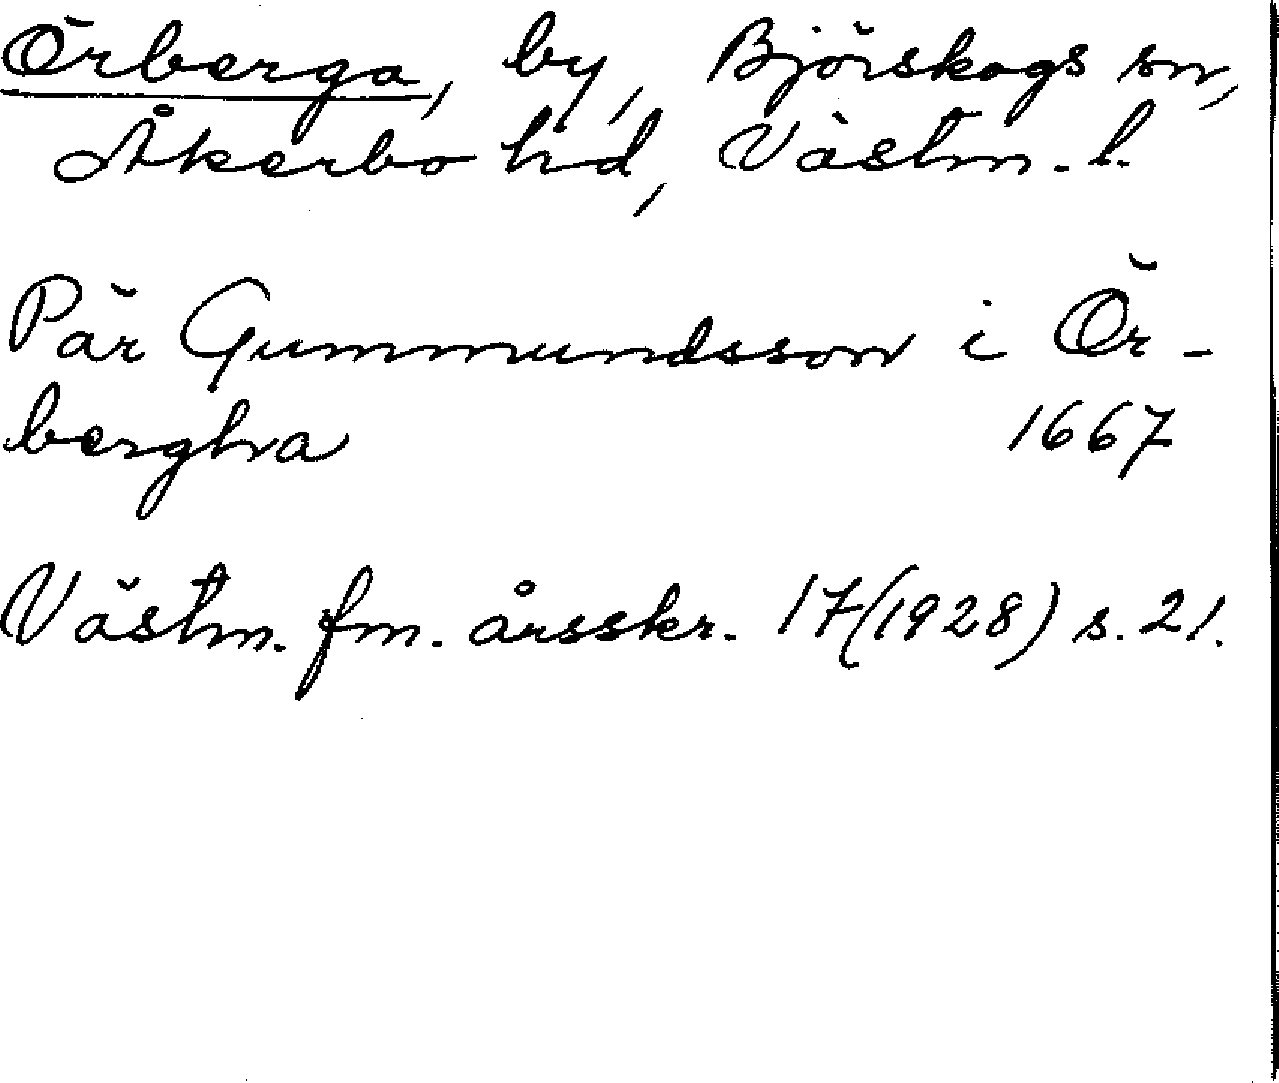 Örberga, by, Björskogs sn,
Åkerbo hd, Västm. l.
Pär Gummundsson i Ör-
bergha 1667
Västm. fm. årsskr. 17 (1928) s. 21.